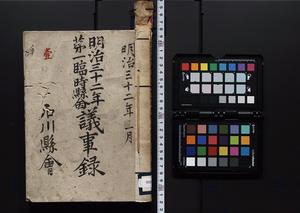 明治三十二年
第一臨時縣會
議事録
石川縣會
壹
明治三十二年一月